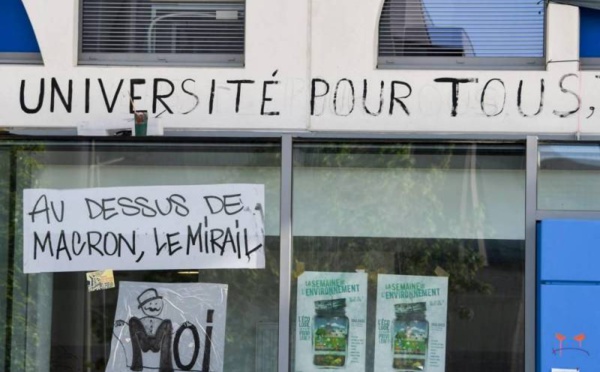 UNIVERSITÉ POUR TOUS,
AU DESSUS DE
MACRON, LE MIRAIL
Moi
LA SEMAINE DE
L'ENVIRONNEMENT
LA SEMAINE DE
L'ENVIRONNEMENT